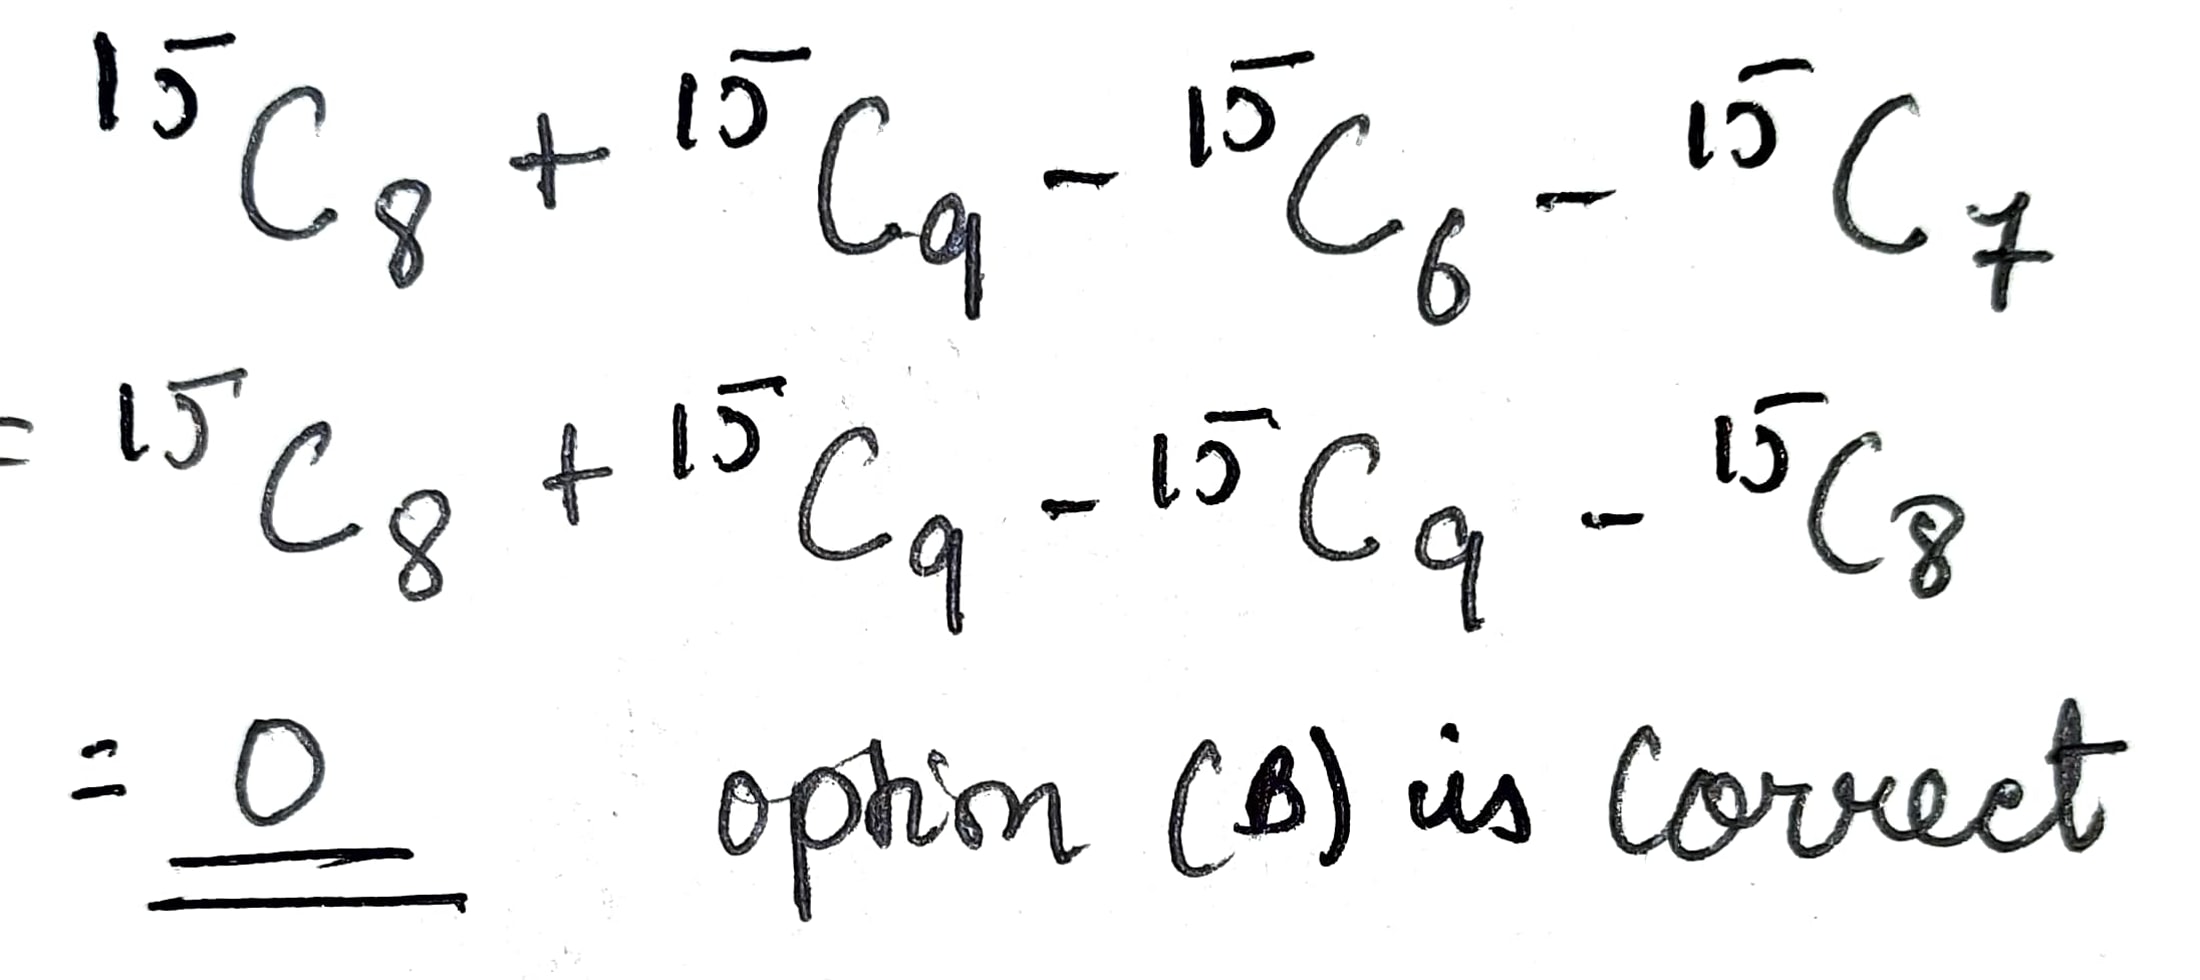 ¹⁵C₈ + ¹⁵C₉ - ¹⁵C₆ - ¹⁵C₇
= ¹⁵C₈ + ¹⁵C₉ - ¹⁵C₉ - ¹⁵C₈
= 0 option (B) is correct